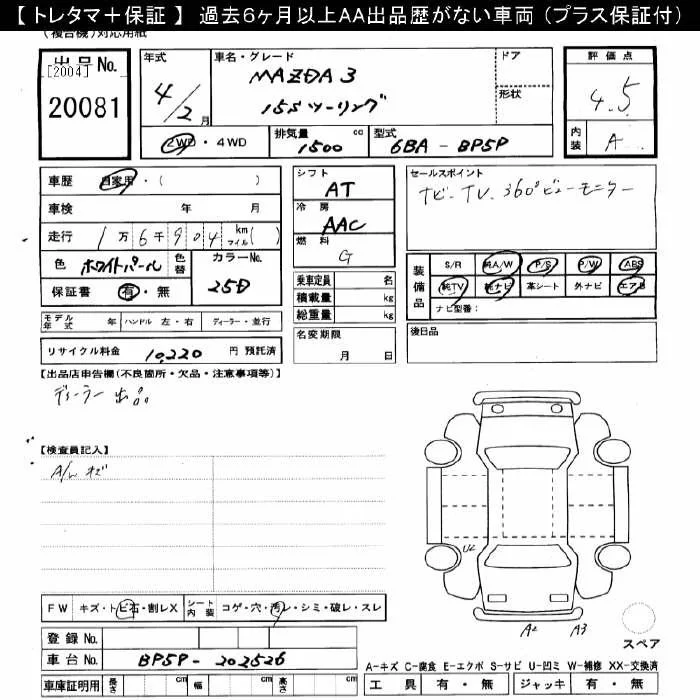 【 トレタマ＋保証 】 過去6ヶ月以上AA出品歴がない車両（プラス保証付）
（複合機）対応用紙
出品 No.
[2004]
20081
年式
4/2月
車名・グレード
MAZDA 3
15Sツーリング
ドア
形状
評価点
4.5
内装 A
2WD・4WD
排気量 1500 cc
型式 6BA - BP5P
車歴 自家用・（ ）
車検 年 月
走行 1万6千904 km マイル（ ）
色 ホワイトパール 色替
カラーNo. 25D
保証書 有・無
シフト
AT
冷房
AAC
燃料
G
乗車定員 名
積載量 kg
総重量 kg
セールスポイント
ナビ. TV. 360°ビューモニター
装備品
S/R 純A/W P/S P/W ABS
純TV 純ナビ 革シート 外ナビ エアB
ナビ型番：
モデル年式 年 ハンドル 左・右 ディーラー・並行
リサイクル料金 10,220 円 預託済
名変期限
月 日
後日品
【出品店申告欄(不良箇所・欠品・注意事項等)】
ディーラー出品
【検査員記入】
A/W キズ
U2
A2 A3
スペア
FW キズ・トビ石・割レX シート内装 コゲ・穴・汚レ・シミ・破レ・スレ
登録 No.
車台 No. BP5P - 202526
車庫証明用 長さ cm 幅 cm 高さ cm
A-キズ C-腐食 E-エクボ S-サビ U-凹ミ W-補修 XX-交換済
工具 有・無 ジャッキ 有・無